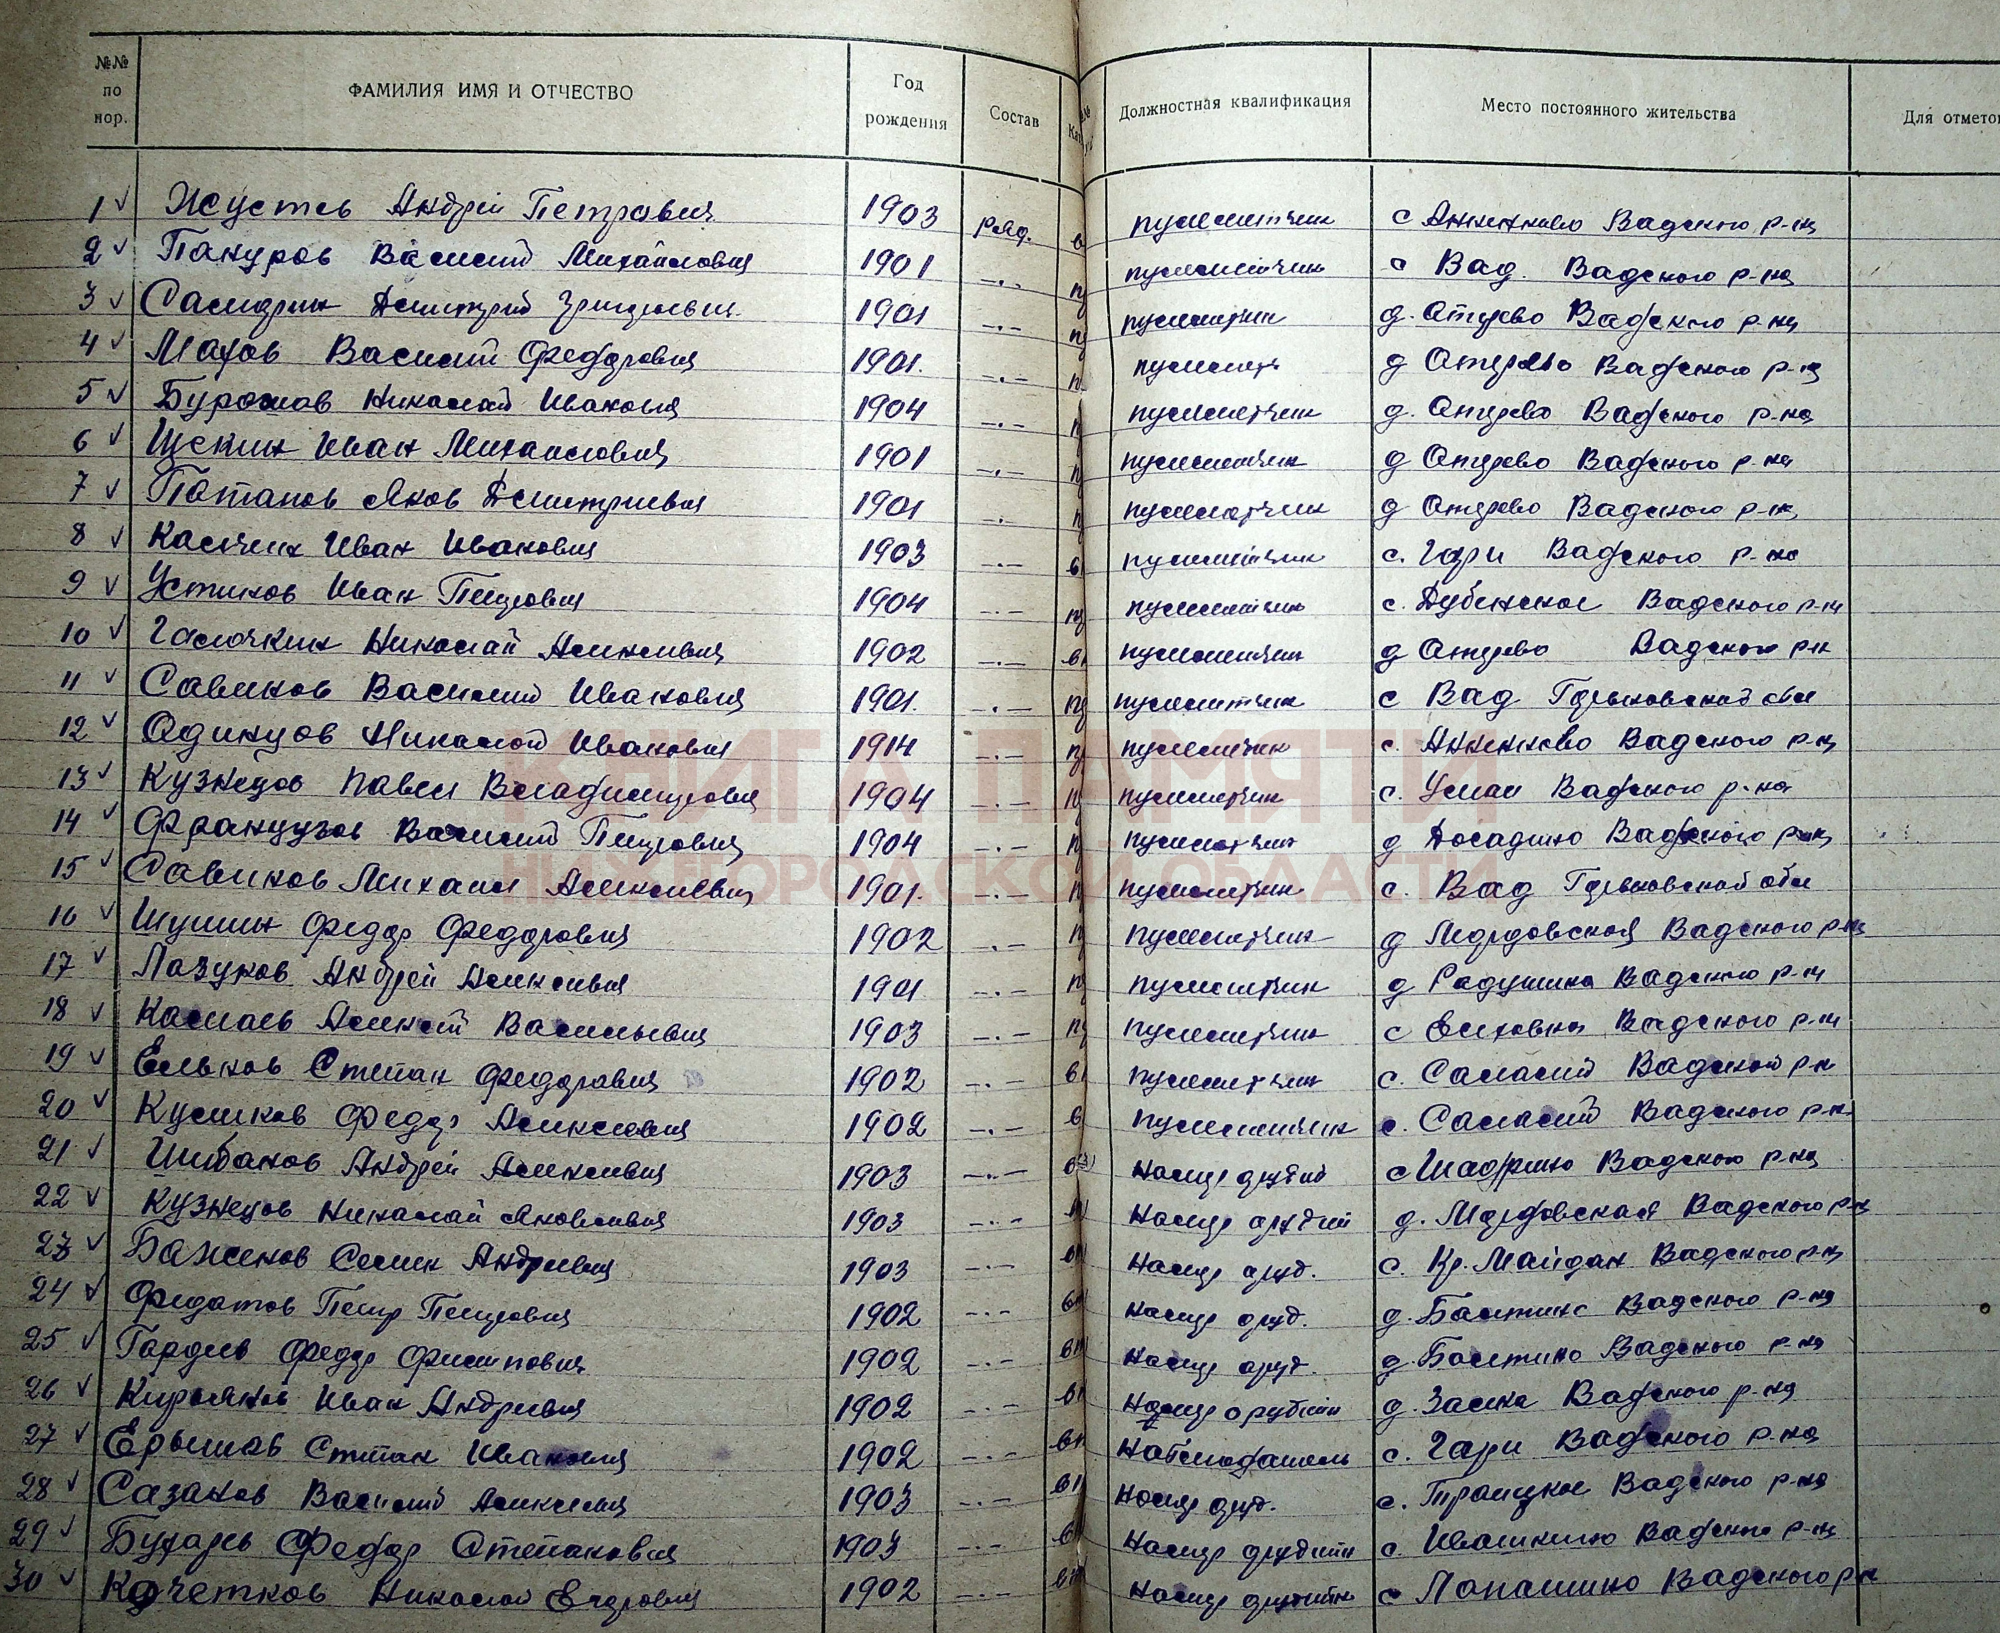 №№ по пор. ФАМИЛИЯ ИМЯ И ОТЧЕСТВО Год рождения Состав Должностная квалификация Место постоянного жительства Для отметок
1 Андрей Петрович 1903 ряд. пулеметчик с Анненково Вадского р-на
2 Пануров Василий Михайлович 1901 -.- пулеметчик с Вад. Вадского р-на
3 Самдрин Дмитрий Григорьевич 1901 -.- пулеметчик д. Отерево Вадского р-на
4 Махов Василий Федорович 1901. -.- пулеметч д Отерево Вадского р-на
5 Бурочков Николай Иванович 1904 -.- пулеметчик д. Отерево Вадского р-на
6 Щекин Иван Михайлович 1901 -.- пулеметчик д Отерево Вадского р-на
7 Потапов Яков Дмитриевич 1901 -.- пулеметчик д Отерево Вадского р-на
8 Иван Иванович 1903 -.- пулеметчик с. Гари Вадского р-на
9 Устинов Иван Петрович 1904 -.- пулеметчик с. Дубенское Вадского р-на
10 Галочкин Николай Алексеевич 1902 -.- пулеметчик д Отерево Вадского р-н
11 Савинов Василий Иванович 1901. -.- пулеметчик с Вад Горьковской обл
12 Одинцов Николай Иванович 1914 -.- пулеметчик с. Анненково Вадского р-на
13 Кузнецов Павел Владимирович 1904 -.- пулеметчик с. Умай Вадского р-на
КНИГА ПАМЯТИ
14 Французов Василий Петрович 1904 -.- пулеметчик д Досадино Вадского р-на
15 Савинов Михаил Алексеевич 1901. -.- пулеметчик с. Вад Горьковской обл
НИЖЕГОРОДСКОЙ ОБЛАСТИ
16 Шумин Федор Федорович 1902 -.- пулеметчик д Мордовской Вадского р-на
17 Лазунов Андрей Алексеевич 1901 -.- пулеметчик д Радушина Вадского р-на
18 Камаев Алексей Васильевич 1903 -.- пулеметчик с Елховка Вадского р-на
19 Ельков Степан Федорович 1902 -.- пулеметчик с. Салалей Вадской р-н
20 Куликов Федор Алексеевич 1902 -.- пулеметчик с. Салалей Вадского р-н
21 Шибанов Андрей Алексеевич 1903 -.- номер орудий с Шадрино Вадского р-на
22 Кузнецов Николай Яковлевич 1903 -.- номер орудий д. Мордовская Вадского р-на
23 Баженов Семен Андреевич 1903 -.- номер оруд. с. Кр. Майдан Вадского р-на
24 Федотов Петр Петрович 1902 -.- номер оруд. д. Вадского р-на
25 Гордеев Федор Филиппович 1902 -.- номер оруд. д. Вадского р-на
26 Киряков Иван Андреевич 1902 -.- номер орудий д. Вадского р-на
27 Степан Иванович 1902 -.- наблюдатель с. Гари Вадского р-на
28 Сазанов Василий Алексеевич 1903 -.- номер оруд. с. Троицкое Вадского р-на
29 Бухарев Федор Степанович 1903 -.- номер орудий с. Ивашкино Вадского р-на
30 Кочетков Николай Егорович 1902 -.- номер орудий с Лопатино Вадского р-н